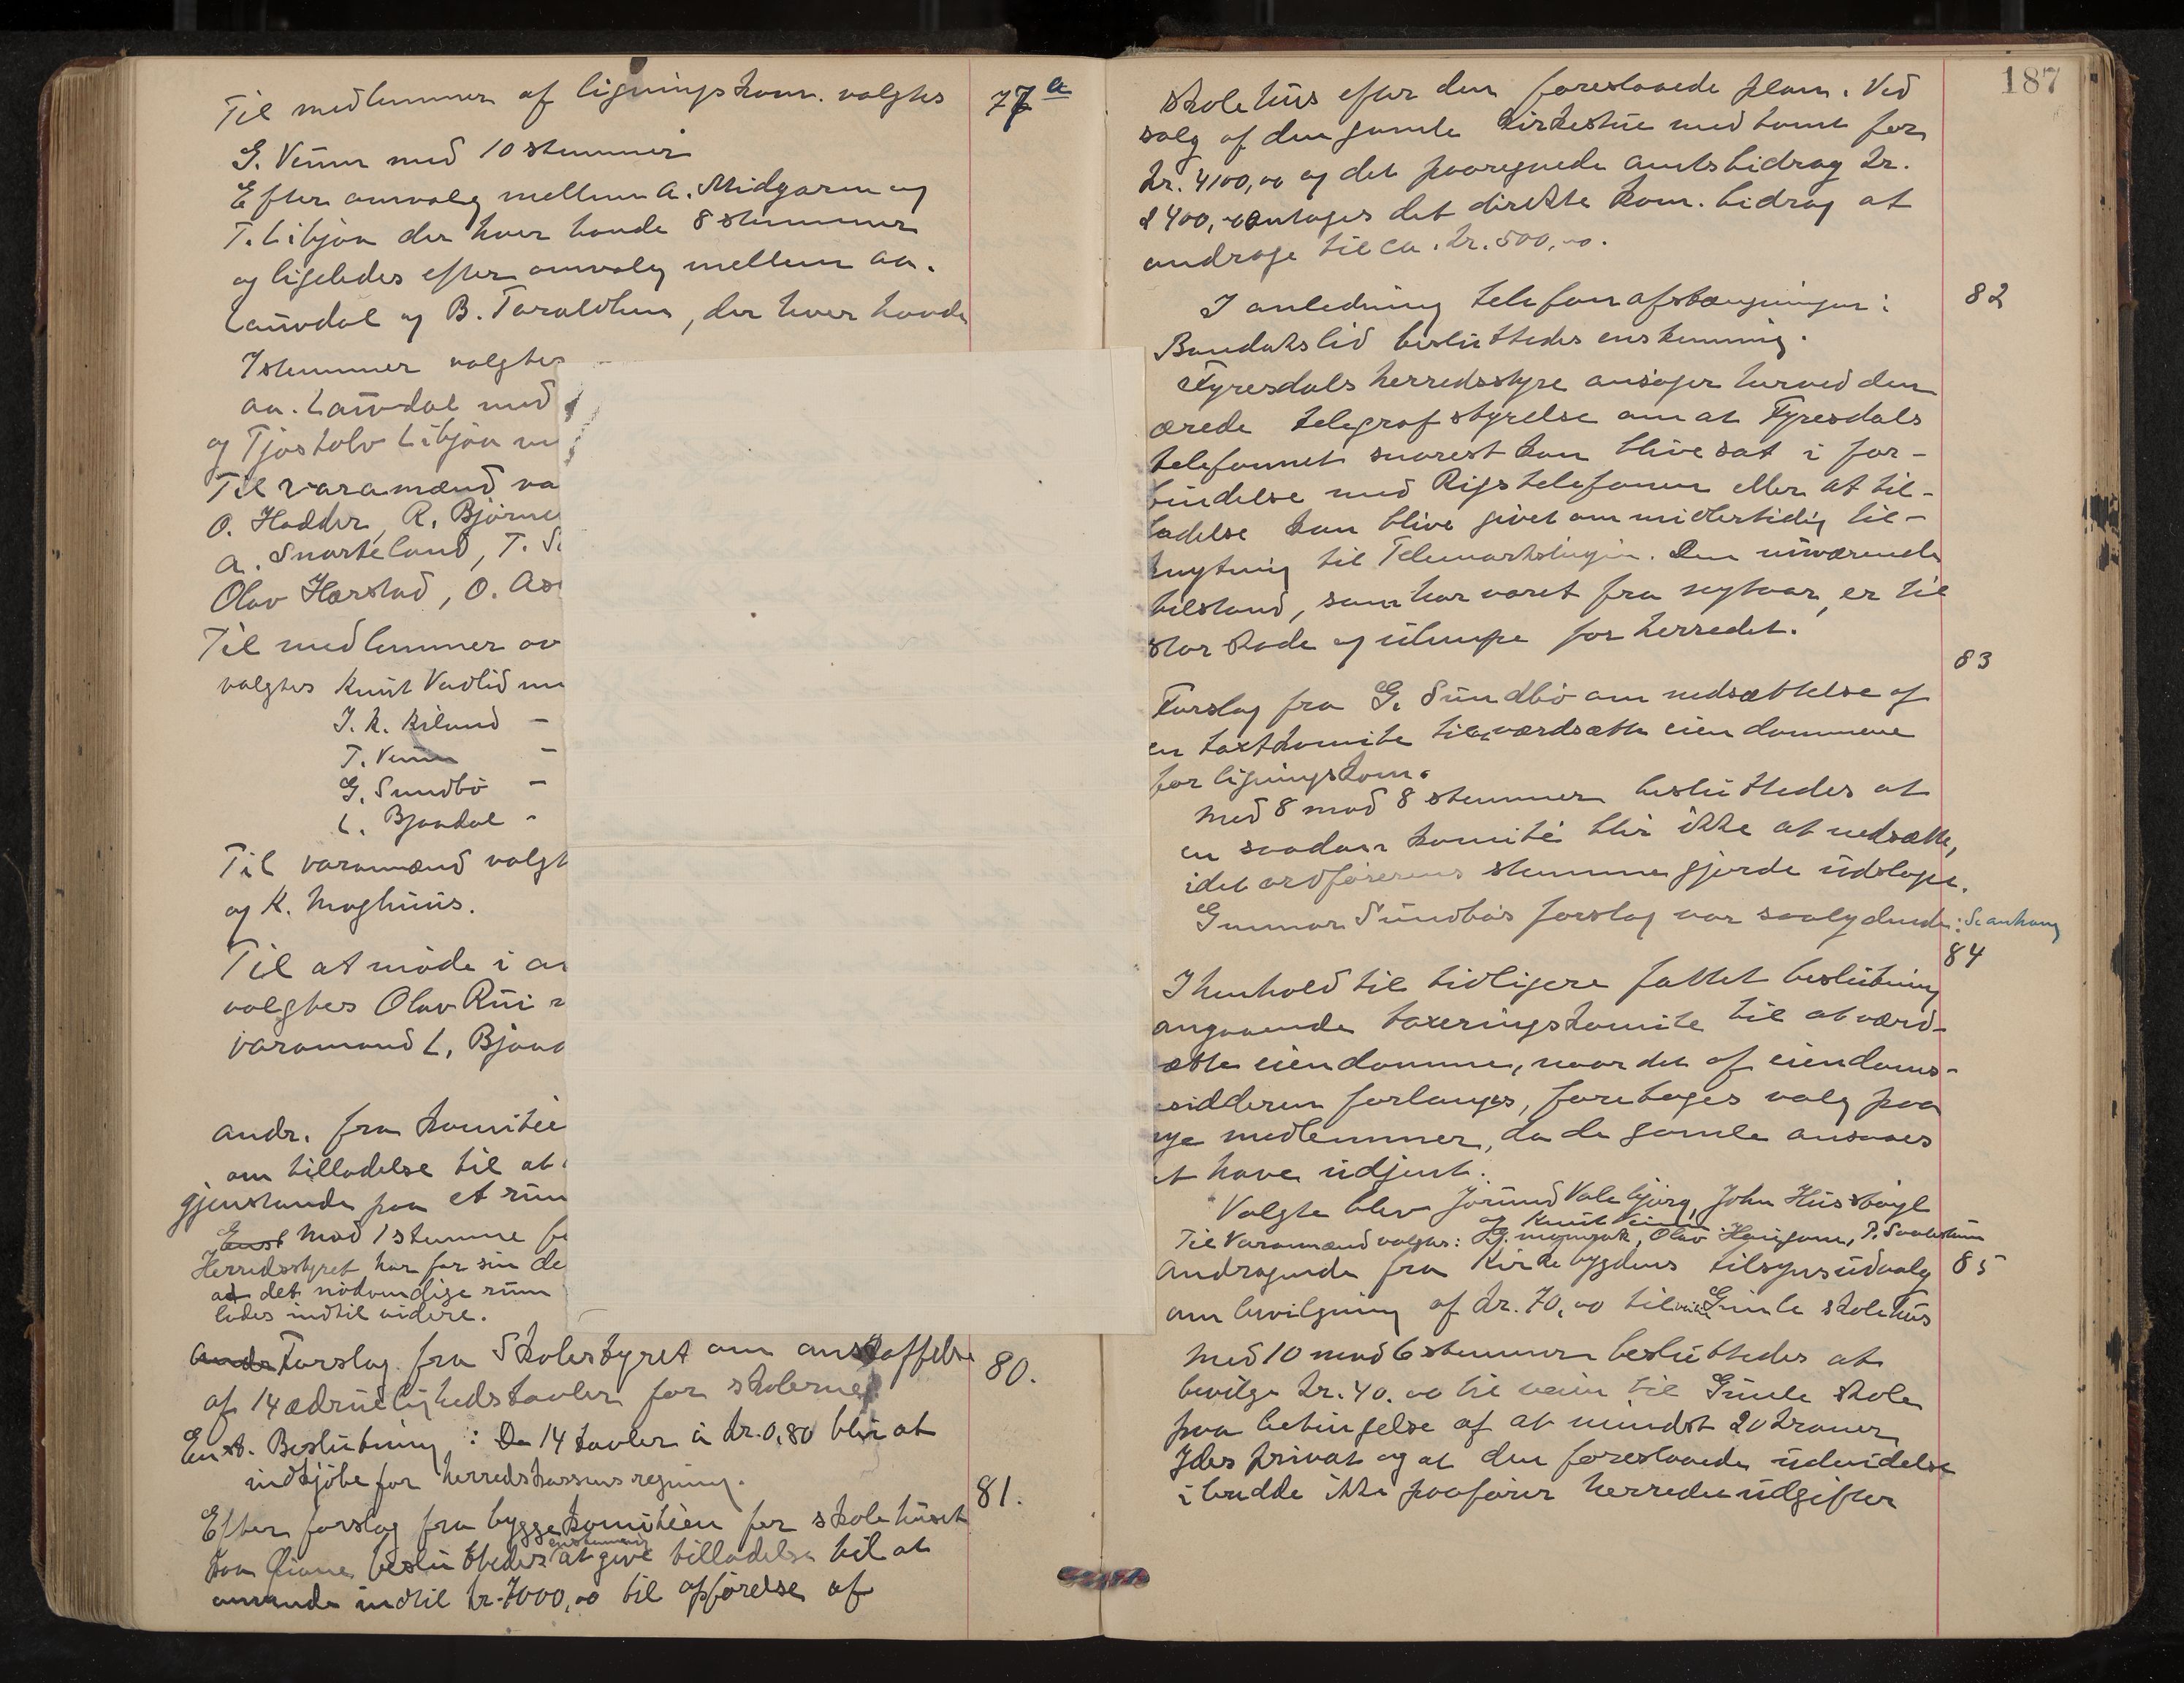 Til medlemmer af ligningskom. valgtes 77 a
G. Veum med 10 stemmer
Efter omvalg mellem A. Midgarm og
T. Libjøn der hver havde 8 stemmer
og ligeledes efter omvalg mellem Aa.
Lauvdal og B. Taraldlien, der hver havde
7 stemmer valgtes
Aa. Lauvdal med
og Tjostolv Libjøn me
Til varamænd va
O. Hodder, R. Bjørne
A. Snarteland, T. S
Olav Harstad, O. As
Til medlemmer av
valgtes Knut Vadlid me
J. K. Kiland -
T. Veum -
G. Sundbö -
L. Bjaadal -
Til varamænd valgt
og K. Moghuus.
Til at møde i a
valgtes Olav Rui
varamand L. Bjaad
Andr. fra komitée
om tilladelse til at
gjenstande paa et rum
Enst mod 1 stemme be
Herredsstyret har for sin de
at det nødvendige rum
lades indtil videre.
Andr Forslag fra Skolestyret om anskaffelse 80.
af 14 ædruelighedstavler for skolerne
Enst. Beslutning: De 14 tavler à kr. 0,80 blir at
indkjøbe for herredskassens regning.
81.
Efter forslag fra byggekomitéen for skolehuset
paa besluttedes enstemmig at give tilladelse til at
anvende indtil kr. 7000,00 til opførelse af
187
skolehus efter den foreslaaede plan. Ved
salg af den gamle kirkestue med tomt for
kr. 4100,00 og det paaregnede amtsbidrag kr.
2400,00 antages det direkte kom. bidrag at
andrage til ca. kr. 500,00.
I anledning telefonafstængningen i 82
Bandakslid besluttedes enstemmig.
Fyresdals herredsstyre ansøger herved den
ærede telegrafstyrelse om at Fyresdals
telefonnet snarest kan blive sat i for-
bindelse med Rigstelefonen eller at til-
ladelse kan blive givet om midlertidig til-
knytning til Telemarkslinjen. Den nuværende
tilstand, som har varet fra nytaar, er til
stor skade og ulempe for herredet.
83
Forslag fra G. Sundbö om nedsættelse af
en taxtkomite til at værdsætte eiendommene
for ligningskom.
Med 8 mod 8 stemmer besluttedes at
en saadan komité blir ikke at nedsætte,
idet ordførerens stemme gjorde udslaget.
Gunnar Sundbös forslag var saalydende: Se anhang
84
I henhold til tidligere fattet beslutning
angaaende taxeringskomite til at værd-
sætte eiendomme, naar det af eiendoms-
besidderen forlanges, foretages valg paa
nye medlemmer, da de gamle ansaaes
at have udtjent.
Valgte blev Jörund Valebjörg, John Husstöyl
og Knut Veum
Til Varamænd valgtes: G. Momrak, Olav Haugom, P.
Andragende fra Kirkebygdens tilsynsudvalg 85
om bevilgning af kr. 70,00 til vein Gimle skolehus
Med 10 mod 6 stemmer besluttedes at
bevilge kr. 40.00 til vein til Gimle skole
paa betingelse af at mindst 20 kroner
ydes privat og at den foreslaaede udvidelse
i bredde ikke paafører herredet udgifter